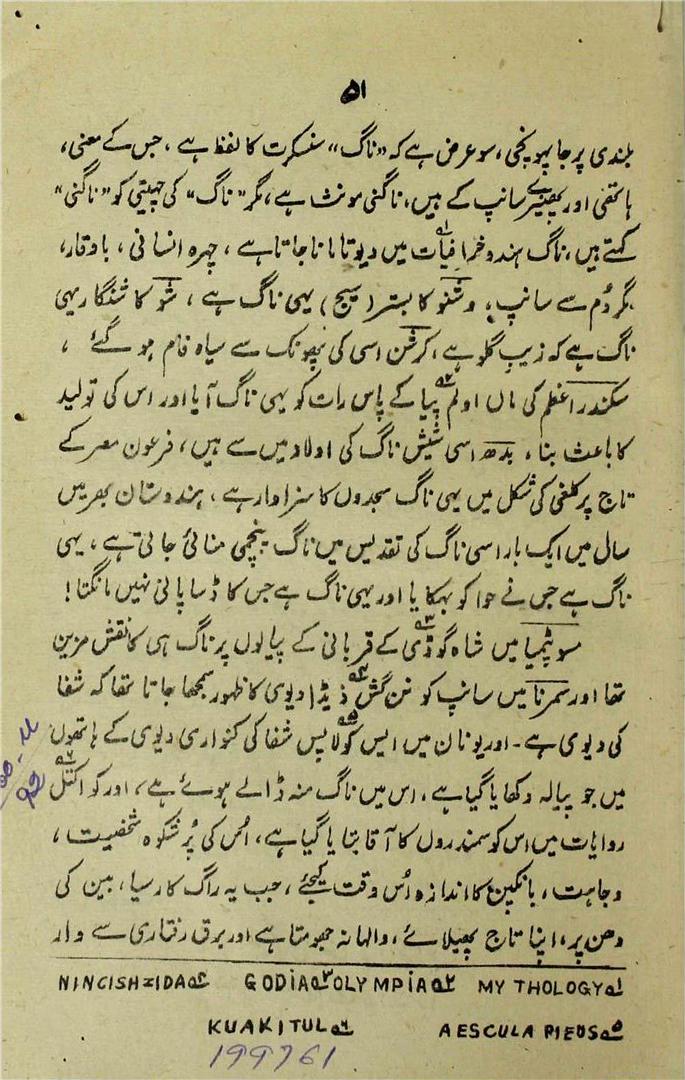 ۵۱
بلندی پر جا پہونچی، سو عرض ہے کہ "ناگ" سنسکرت کا لفظ ہے، جس کے معنی،
ہاتھی اور سانپ کے ہیں، ناگنی مونث ہے، مگر "ناگ" کی چہیتی کو "ناگنی"
کہتے ہیں، ناگ ہندو خرافیات۱؎ میں دیوتا مانا جاتا ہے، چہرہ انسانی، باوقار،
مگر دُم سے سانپ، وشنو کا بستر (سیج) یہی ناگ ہے، شو کا شنگار یہی
ناگ ہے کہ زیب گلو ہے، کرشن اسی کی پھونک سے سیاہ فام ہو گئے،
سکندر اعظم کی ماں اولم پیا۲؎ کے پاس رات کو یہی ناگ آیا اور اس کی تولید
کا باعث بنا، بدھ اسی شیش ناگ کی اولاد میں سے ہیں، فرعون مصر کے
تاج پر کلغی کی شکل میں یہی ناگ سجدوں کا سزاوار ہے، ہندوستان بھر میں
سال میں ایک بار اسی ناگ کی تقدیس میں ناگ پنچمی منائی جاتی ہے، یہی
ناگ ہے جس نے حوا کو بہکایا اور یہی ناگ ہے جس کا ڈسا پانی نہیں مانگتا!
میں شاہ گوڈی۳؎ کے قربانی کے پیالوں پر ناگ ہی کا نقش مزین
تھا اور سمرنا میں سانپ کو نن گش ذیڈا۴؎ دیوی کا ظہور سمجھا جاتا تھا کہ شفا
کی دیوی ہے۔ اور یونان میں ایس کولاپس۵؎ شفا کی کنواری دیوی کے ہاتھوں
میں جو پیالہ دکھایا گیا ہے، اس میں ناگ منہ ڈالے ہوئے ہے، اور کو اکتل۶؎
روایات میں اس کو سمندروں کا آقا بتایا گیا ہے، اُس کی پُر شکوہ شخصیت،
وجاہت، بانکپن کا اندازہ اُس وقت کیجئے، جب یہ راگ کا رسیا، بین کی
دھن پر، اپنا تاج پھیلائے، والہانہ جھومتا ہے اور برق رفتاری سے وار
۱؎ MY THOLOGY ۲؎ OLYMPIA ۳؎ GODIA ۴؎ NINCISHZIDA
۵؎ AESCULA PIEUS ۶؎ KUAKITUL
199761